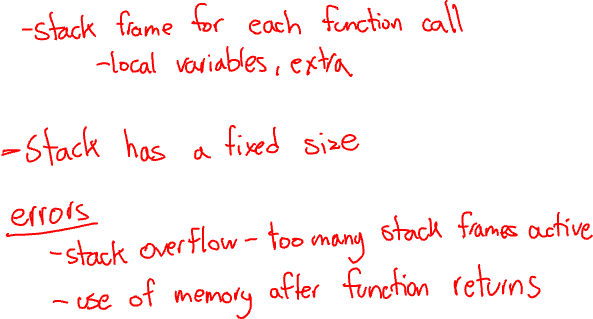 -stack frame for each function call
-local variables, extra
-Stack has a fixed size
errors
-stack overflow - too many stack frames active
-use of memory after function returns